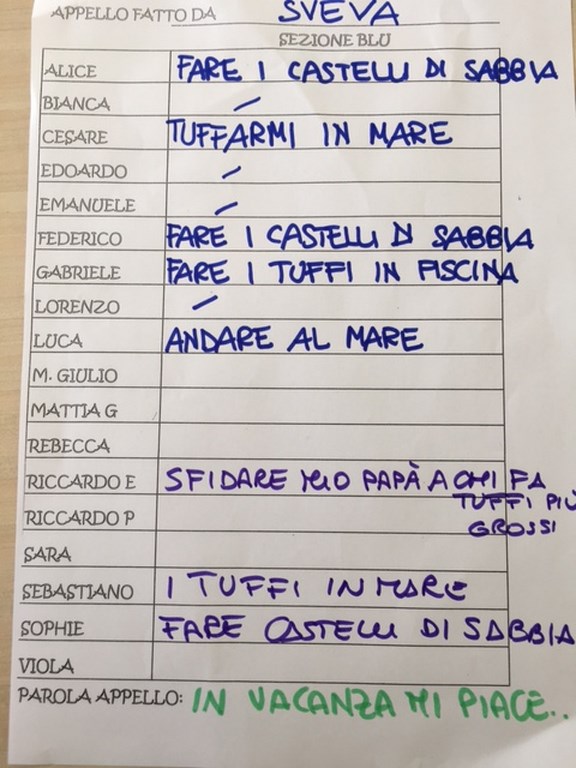 APPELLO FATTO DA SVEVA
SEZIONE BLU
ALICE FARE I CASTELLI DI SABBIA
BIANCA –
CESARE TUFFARMI IN MARE
EDOARDO –
EMANUELE –
FEDERICO FARE I CASTELLI DI SABBIA
GABRIELE FARE I TUFFI IN PISCINA
LORENZO –
LUCA ANDARE AL MARE
M. GIULIO
MATTIA G
REBECCA
RICCARDO E SFIDARE MIO PAPÀ A CHI FA
TUFFI PIÙ
RICCARDO P
GROSSI
SARA
SEBASTIANO I TUFFI IN MARE
SOPHIE FARE CASTELLI DI SABBIA
VIOLA
PAROLA APPELLO: IN VACANZA MI PIACE..